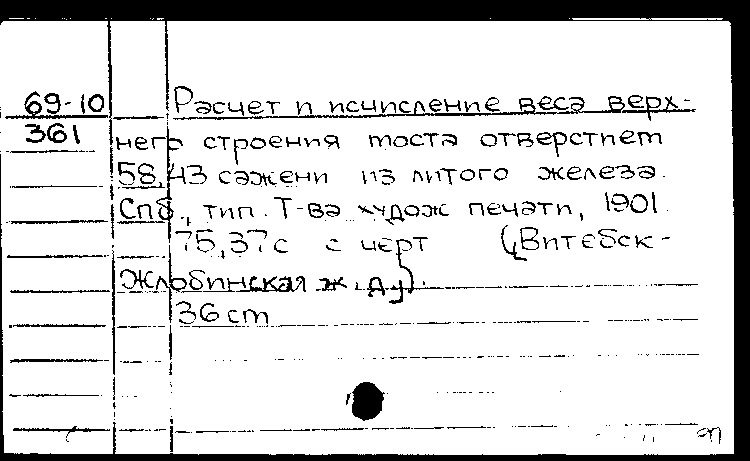 69-10 Расчет и исчисление веса верх-
361 него строения моста отверстием
58,43 сажени из литого железа.
Спб., тип. Т-ва худож печати, 1901.
75,37с с черт („Витебск-
Жлобинская ж.д.").
36 cm